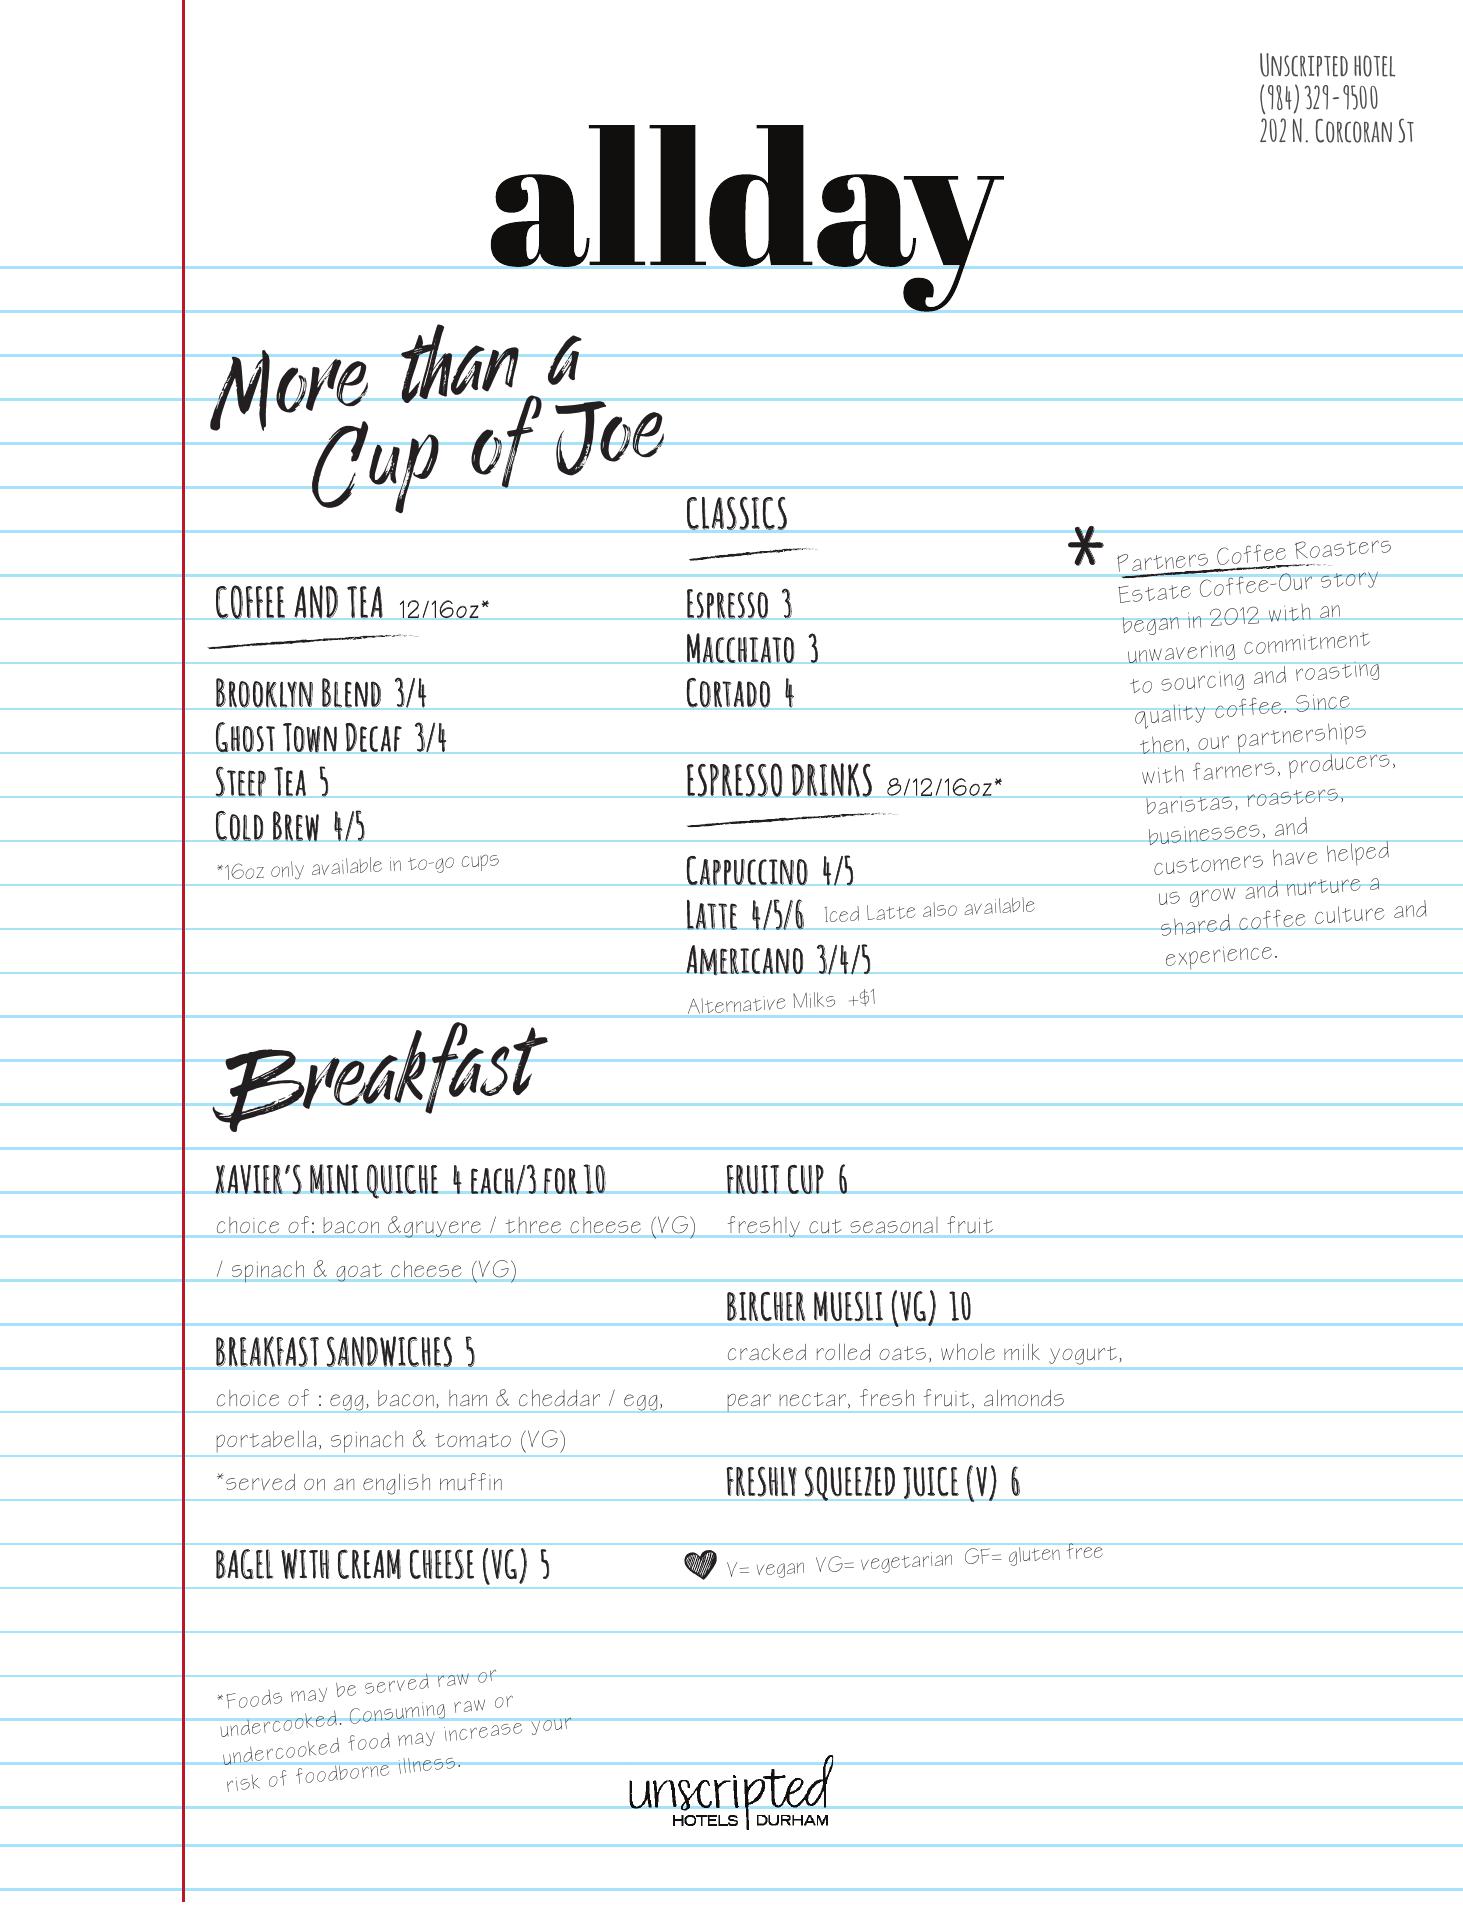 Unscripted Hotel
(984) 329-9500
202 N. Corcoran St
allday
More than a
Cup of Joe
COFFEE AND TEA 12/16oz*
Brooklyn Blend 3/4
Ghost Town Decaf 3/4
Steep Tea 5
Cold Brew 4/5
*16oz only available in to-go cups
CLASSICS
Espresso 3
Macchiato 3
Cortado 4
ESPRESSO DRINKS 8/12/16oz*
Cappuccino 4/5
Latte 4/5/6 Iced Latte also available
Americano 3/4/5
Alternative Milks +$1
* Partners Coffee Roasters
Estate Coffee-Our story
began in 2012 with an
unwavering commitment
to sourcing and roasting
quality coffee. Since
then, our partnerships
with farmers, producers,
baristas, roasters,
businesses, and
customers have helped
us grow and nurture a
shared coffee culture and
experience.
Breakfast
XAVIER'S MINI QUICHE 4 EACH/3 FOR 10
choice of: bacon &gruyere / three cheese (VG)
/ spinach & goat cheese (VG)
BREAKFAST SANDWICHES 5
choice of : egg, bacon, ham & cheddar / egg,
portabella, spinach & tomato (VG)
*served on an english muffin
BAGEL WITH CREAM CHEESE (VG) 5
FRUIT CUP 6
freshly cut seasonal fruit
BIRCHER MUESLI (VG) 10
cracked rolled oats, whole milk yogurt,
pear nectar, fresh fruit, almonds
FRESHLY SQUEEZED JUICE (V) 6
V= vegan VG= vegetarian GF= gluten free
*Foods may be served raw or
undercooked. Consuming raw or
undercooked food may increase your
risk of foodborne illness.
unscripted
HOTELS | DURHAM